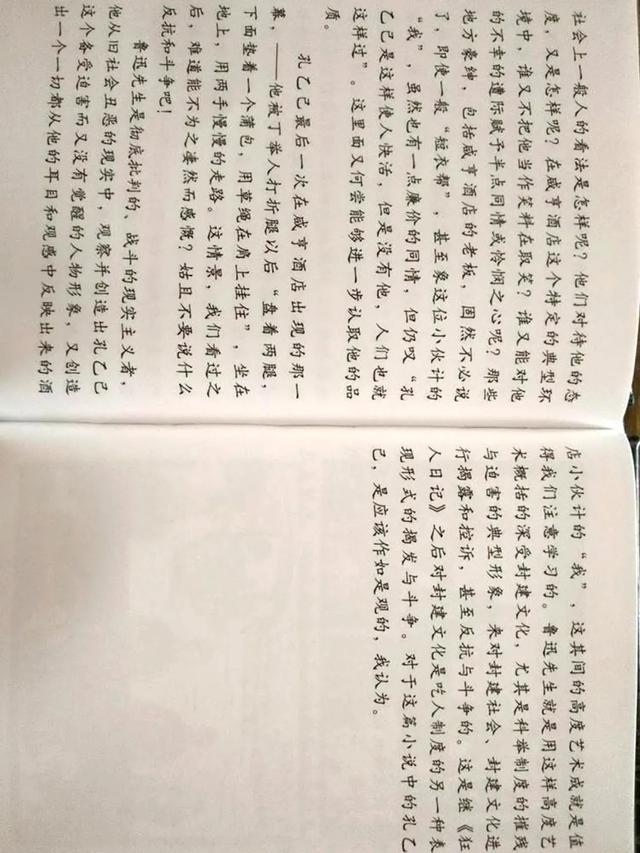 社会上一般人的看法是怎样呢？他们对待他的态
度，又是怎样呢？在咸亨酒店这个特定的典型环
境中，谁又不把他当作笑料在取笑？谁又能对他
的不幸的遭际赋予半点同情或怜悯之心呢？那些
地方豪绅，包括咸亨酒店的老板，固然不必说
了，即使一般“短衣帮”，甚至象这位小伙计的
“我”，虽然也有一点廉价的同情，但仍叹“孔
乙己是这样使人快活，但是没有他，人们也就
这样过”。这里面又何尝能够进一步认取他的品
质。
孔乙己最后一次在咸亨酒店出现的那一
幕，——他被丁举人打折腿以后“盘着两腿，
下面垫着一个蒲包，用草绳在肩上挂住”，坐在
地上，用两手慢慢的走路。这情景，我们看过之
后，难道能不为之凄然而感慨？姑且不要说什么
反抗和斗争吧！
鲁迅先生是彻底批判的、战斗的现实主义者，
他从旧社会丑恶的现实中，观察并创造出孔乙己
这个备受迫害而又没有觉醒的人物形象，又创造
出一个一切都从他的耳目和观感中反映出来的酒
店小伙计的“我”，这其间的高度艺术成就是值
得我们注意学习的。鲁迅先生就是用这样高度艺
术概括的深受封建文化，尤其是科举制度的摧残
与迫害的典型形象，来对封建社会、封建文化进
行揭露和控诉，甚至反抗与斗争的。这是继《狂
人日记》之后对封建文化是吃人制度的另一种表
现形式的揭发与斗争。对于这篇小说中的孔乙
己，是应该作如是观的，我认为。